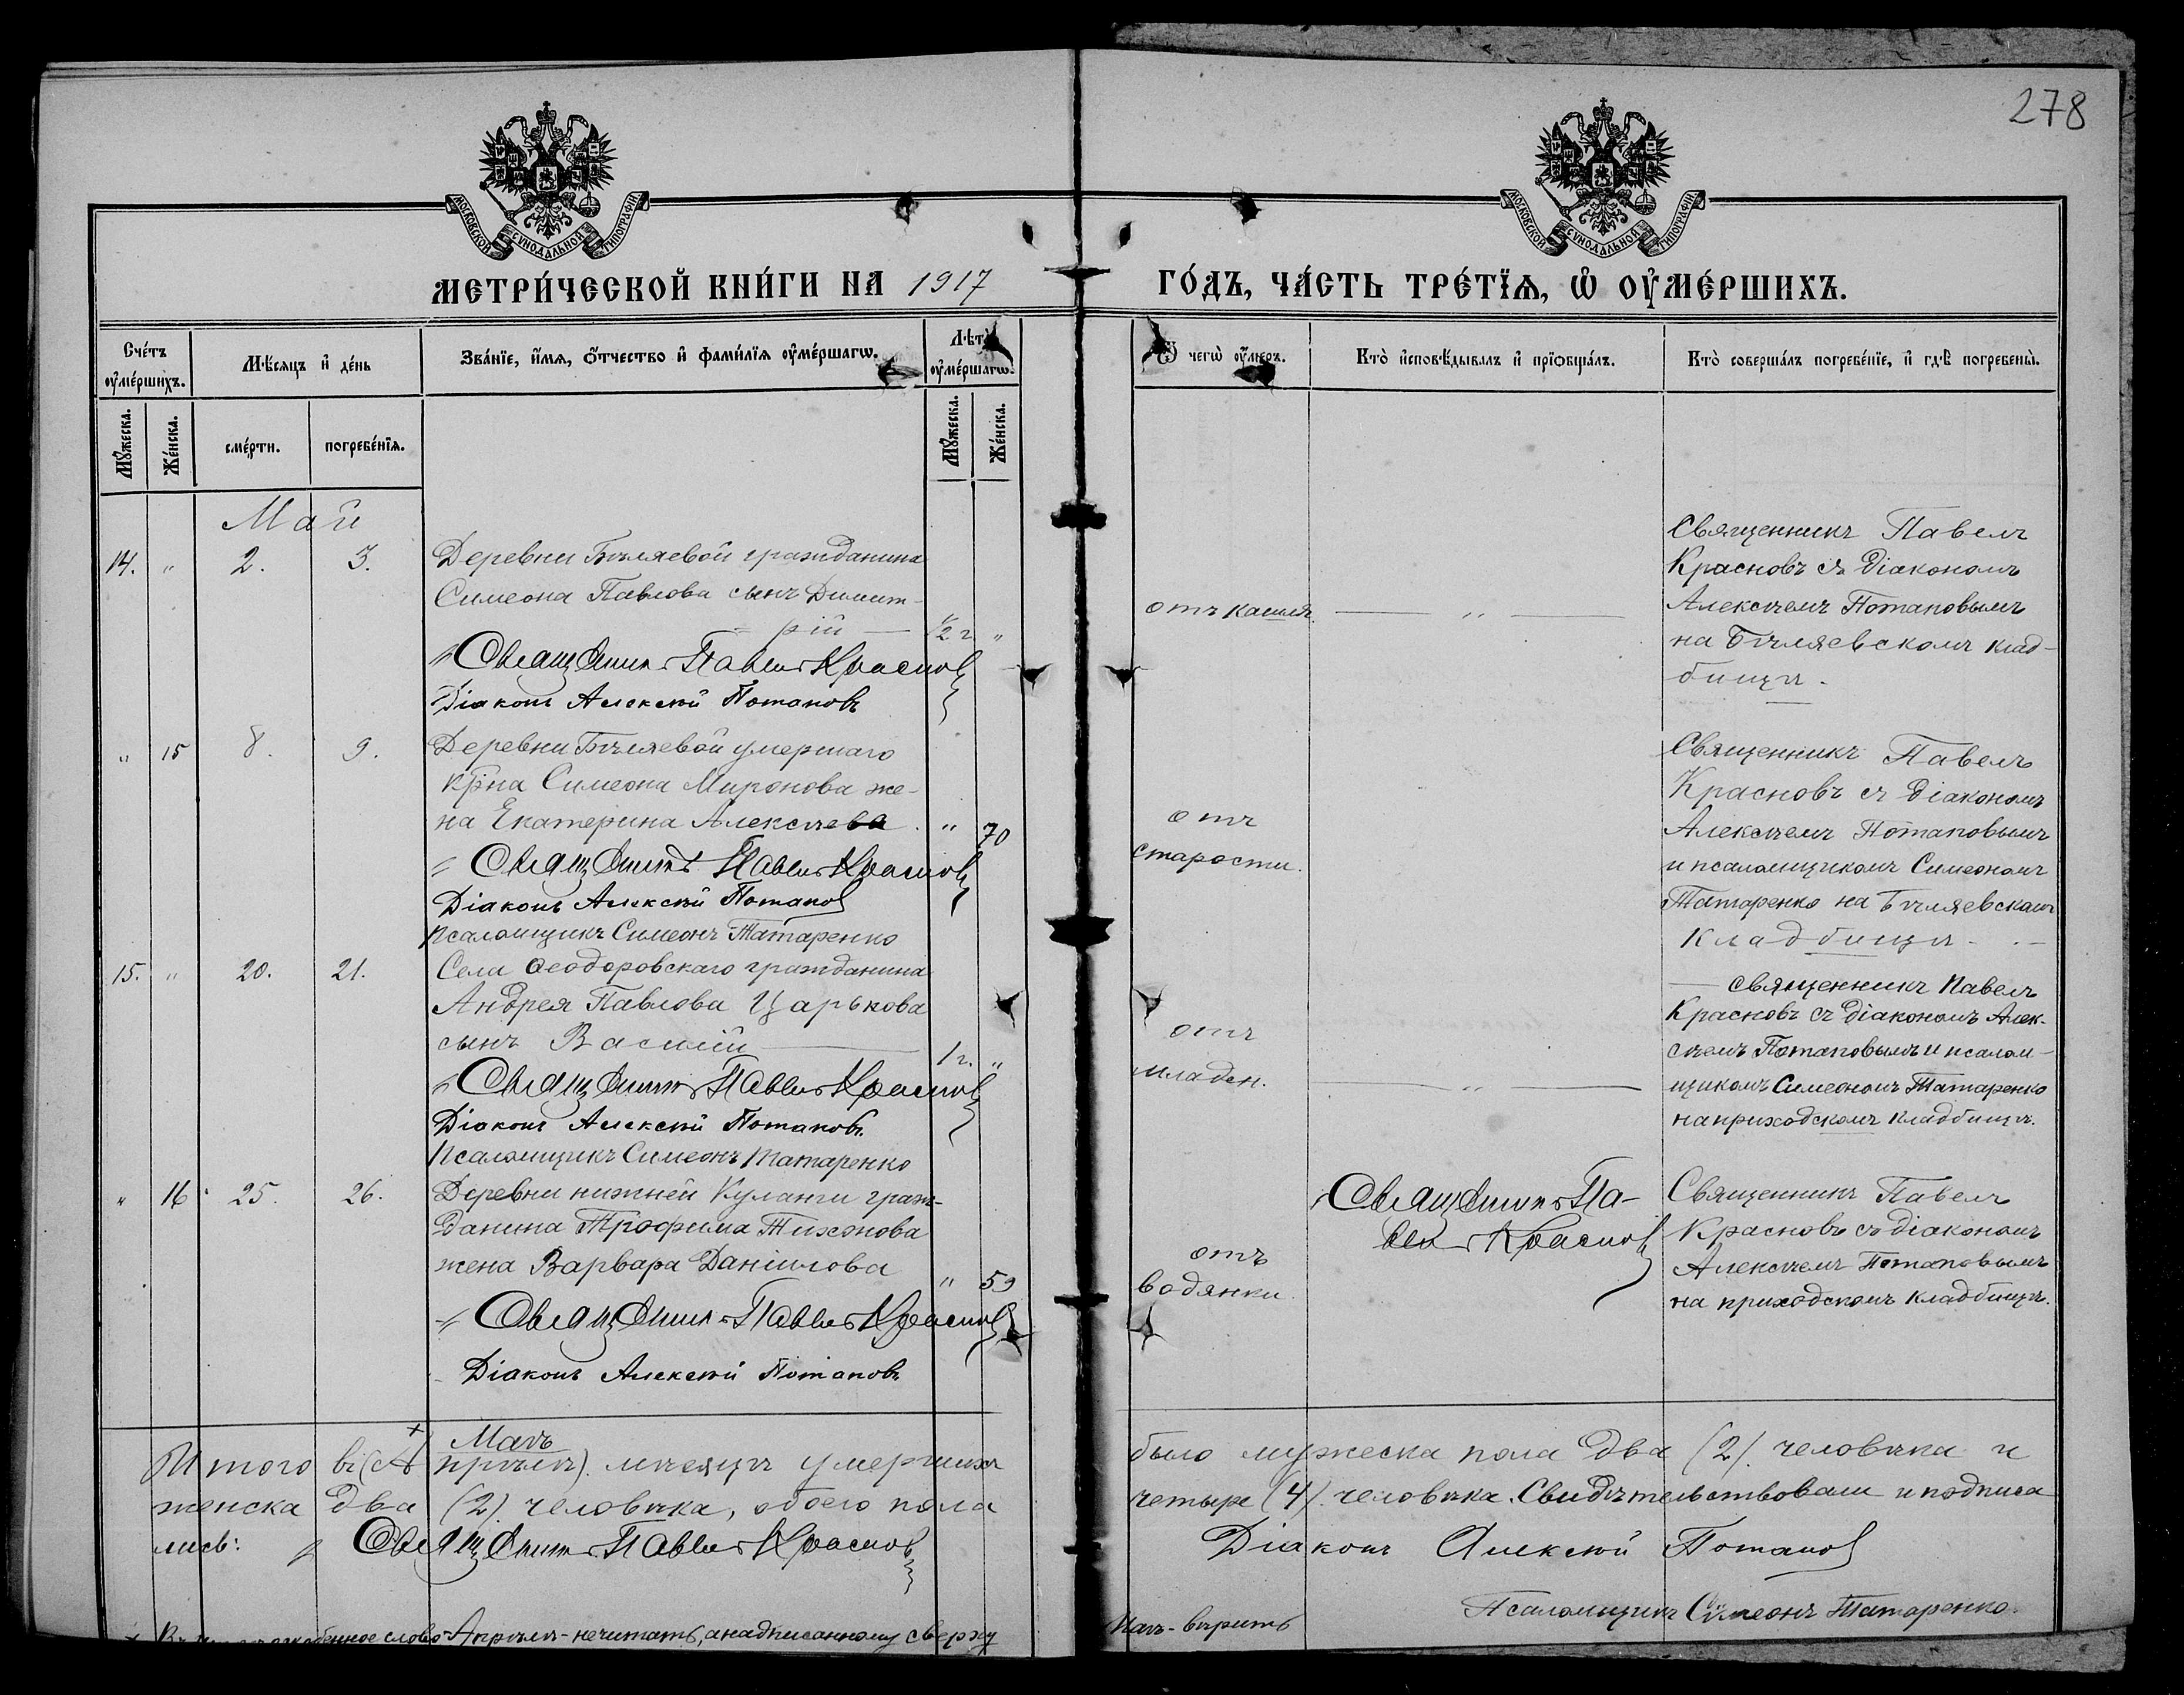 278
МОСКОВСКОЙ СѴНОДАЛЬНОЙ ТИПОГРАФІИ
МОСКОВСКОЙ СѴНОДАЛЬНОЙ ТИПОГРАФІИ
МЕТРИ́ЧЕСКОЙ КНИ́ГИ НА 1917
ГО́ДЪ, ЧА́СТЬ ТРЕ́ТЇѦ, Ѡ҆ ОУ҆МЕ́РШИХЪ.
Сче́тъ оу҆ме́ршихъ.
Мѣ́сяцъ и҆ де́нь
Зва́нїе, и҆́мѧ, ѻ҆́тчество и҆ фами́лїѧ оу҆ме́ршагѡ.
Лѣт оу҆ме́ршагѡ.
Ѿ чегѡ̀ оу҆́меръ.
Кто̀ и҆сповѣ́дывалъ и҆ прїѡбща́лъ.
Кто̀ соверша́лъ погребе́нїе, и҆ гдѣ̀ погребены̀.
Мꙋ́жеска.
Же́нска.
сме́рти.
погребе́нїѧ.
Мꙋ́жеска.
Же́нска.
Май
14. " 2. 3.
Деревни Бѣляевой гражданина
Симеона Павлова сынъ Димит-
рій — ½ г. "
Священникъ Павелъ Красновъ
Діаконъ Алексѣй Потаповъ
отъ кашля.
— " —
Священникъ Павелъ
Красновъ съ діакономъ
Алексѣемъ Потаповымъ
на Бѣляевскомъ клад-
бищѣ.
" 15 8. 9.
Деревни Бѣляевой умершаго
кр̃на Симеона Миронова же-
на Екатерина Алексѣева. " 70
Священникъ Павелъ Красновъ
Діаконъ Алексѣй Потаповъ
Псаломщикъ Симеонъ Татаренко
отъ
старости.
Священникъ Павелъ
Красновъ съ діакономъ
Алексѣемъ Потаповымъ
и псаломщикомъ Симеономъ
Татаренко на Бѣляевскомъ
кладбищѣ.
15. " 20. 21.
Села Ѳеодоровскаго гражданина
Андрея Павлова Царькова
сынъ Василій — 1 г. "
Священникъ Павелъ Красновъ
Діаконъ Алексѣй Потаповъ.
Псаломщикъ Симеонъ Татаренко
отъ
младен.
— " —
— Священникъ Павелъ
Красновъ съ діакономъ Алек-
сѣемъ Потаповымъ и псалом-
щикомъ Симеономъ Татаренко
на приходскомъ кладбищѣ.
" 16 25. 26.
Деревни нижней Куланги граж-
данина Трофима Тихонова
жена Варвара Даніилова " 59
Священникъ Павелъ Красновъ
Діаконъ Алексѣй Потаповъ
отъ
водянки
Священникъ Па-
велъ Красновъ
Священникъ Павелъ
Красновъ съ діакономъ
Алексѣемъ Потаповымъ
на приходскомъ кладбищѣ.
Маѣ
Итого въ (Апрѣлѣ) мѣсяцѣ умершихъ было мужеска пола два (2) человѣка и
женска два (2) человѣка, обоего пола четыре (4) человѣка. Свидѣтельствовали и подписа
лись: Священникъ Павелъ Красновъ Діаконъ Алексѣй Потаповъ
Псаломщикъ Сѵмеонъ Татаренко.
слово - Апрѣлѣ - не читать, а надписанному сверху Маѣ - вѣрить